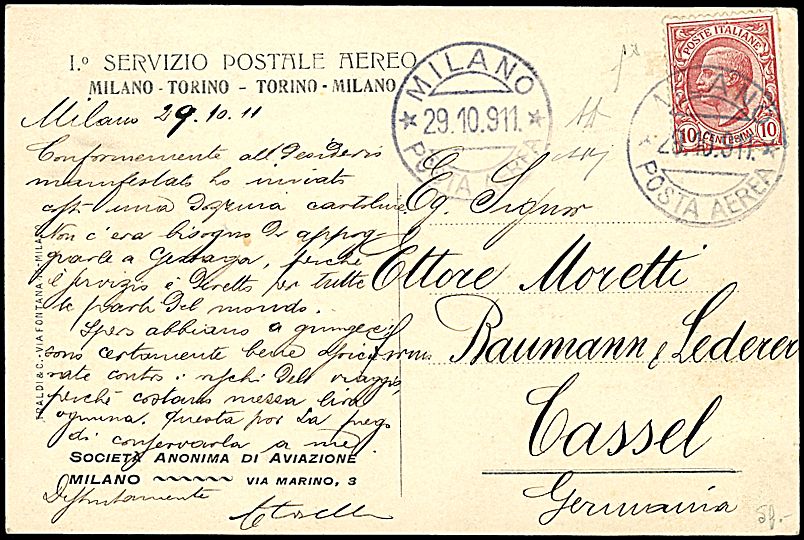 I.º SERVIZIO POSTALE AEREO
MILANO - TORINO - TORINO - MILANO
Milano 29.10.11
Conformemente all desiderio
manifestato ho inviato
costì una dozzina cartoline
Non c'era bisogno di appog-
giarle a perchè
è servizio è diretto per tutte
le parti del mondo.
Spero abbiano a giungere
sono certamente bene
rate contro i rischi del viaggio,
perchè costano mezza lira
ognuna. Questa poi La prego
di conservarla a me
SOCIETÀ ANONIMA DI AVIAZIONE
MILANO VIA MARINO, 3
Distintamente
MILANO
29.10.911.
POSTA AEREA
POSTE ITALIANE
10 CENTESIMI 10
MILANO
29.10.911.
POSTA AEREA
Eg. Signor
Ettore Moretti
Baumann & Lederer
Cassel
Germania
RALDI & C. - VIA FONTANA - MILA